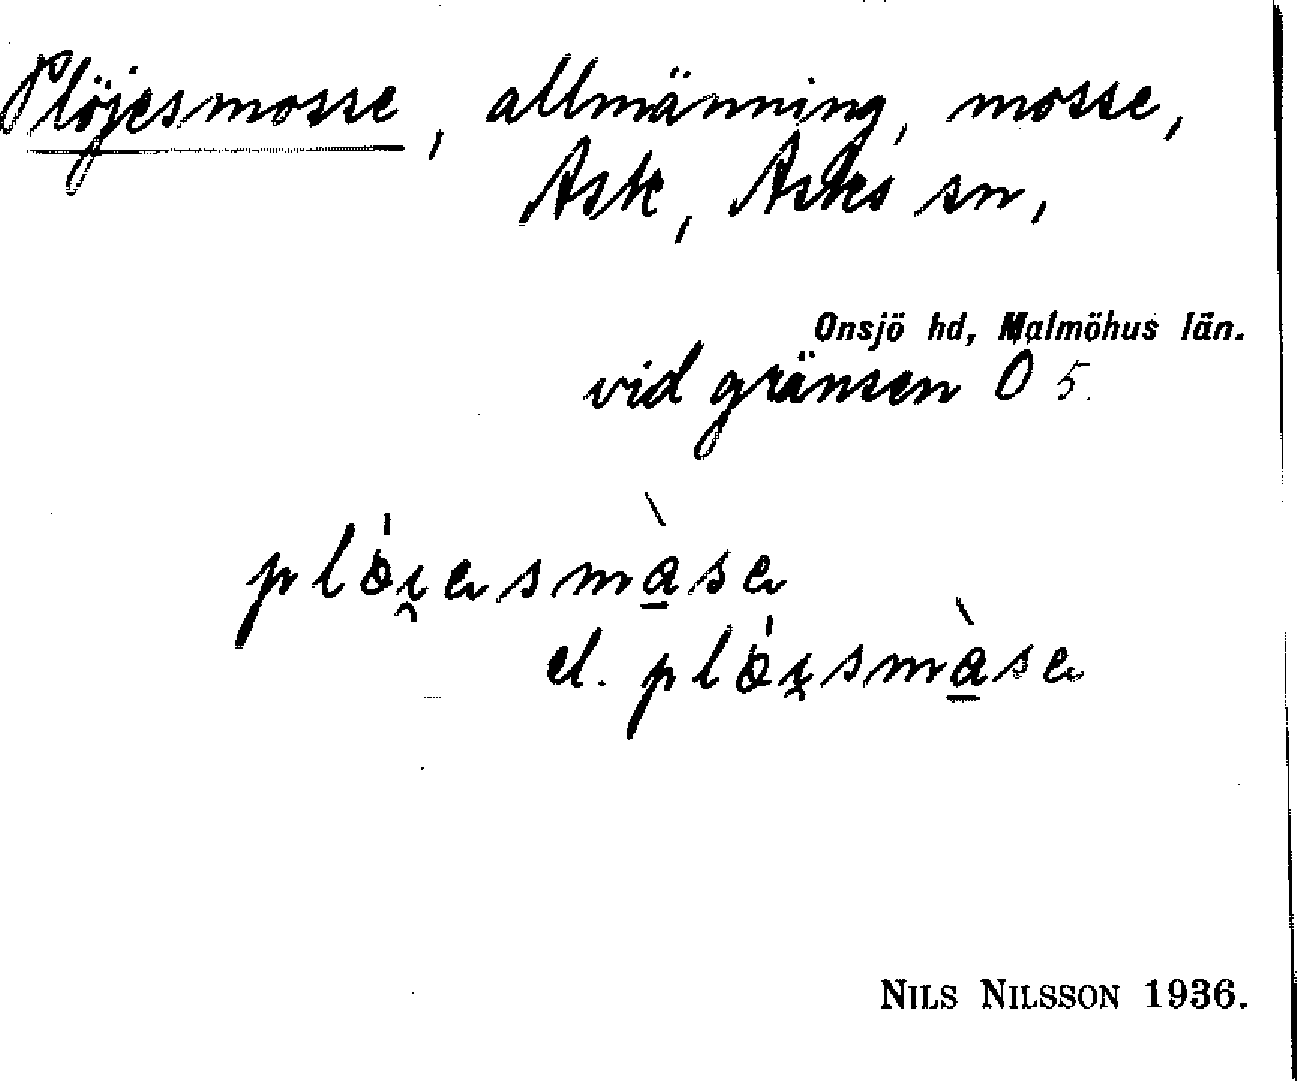 Plöjesmosse, allmänning, mosse,
Ask, Asks sn,
Onsjö hd, Malmöhus län.
vid gränsen Ö 5.
el.
NILS NILSSON 1936.